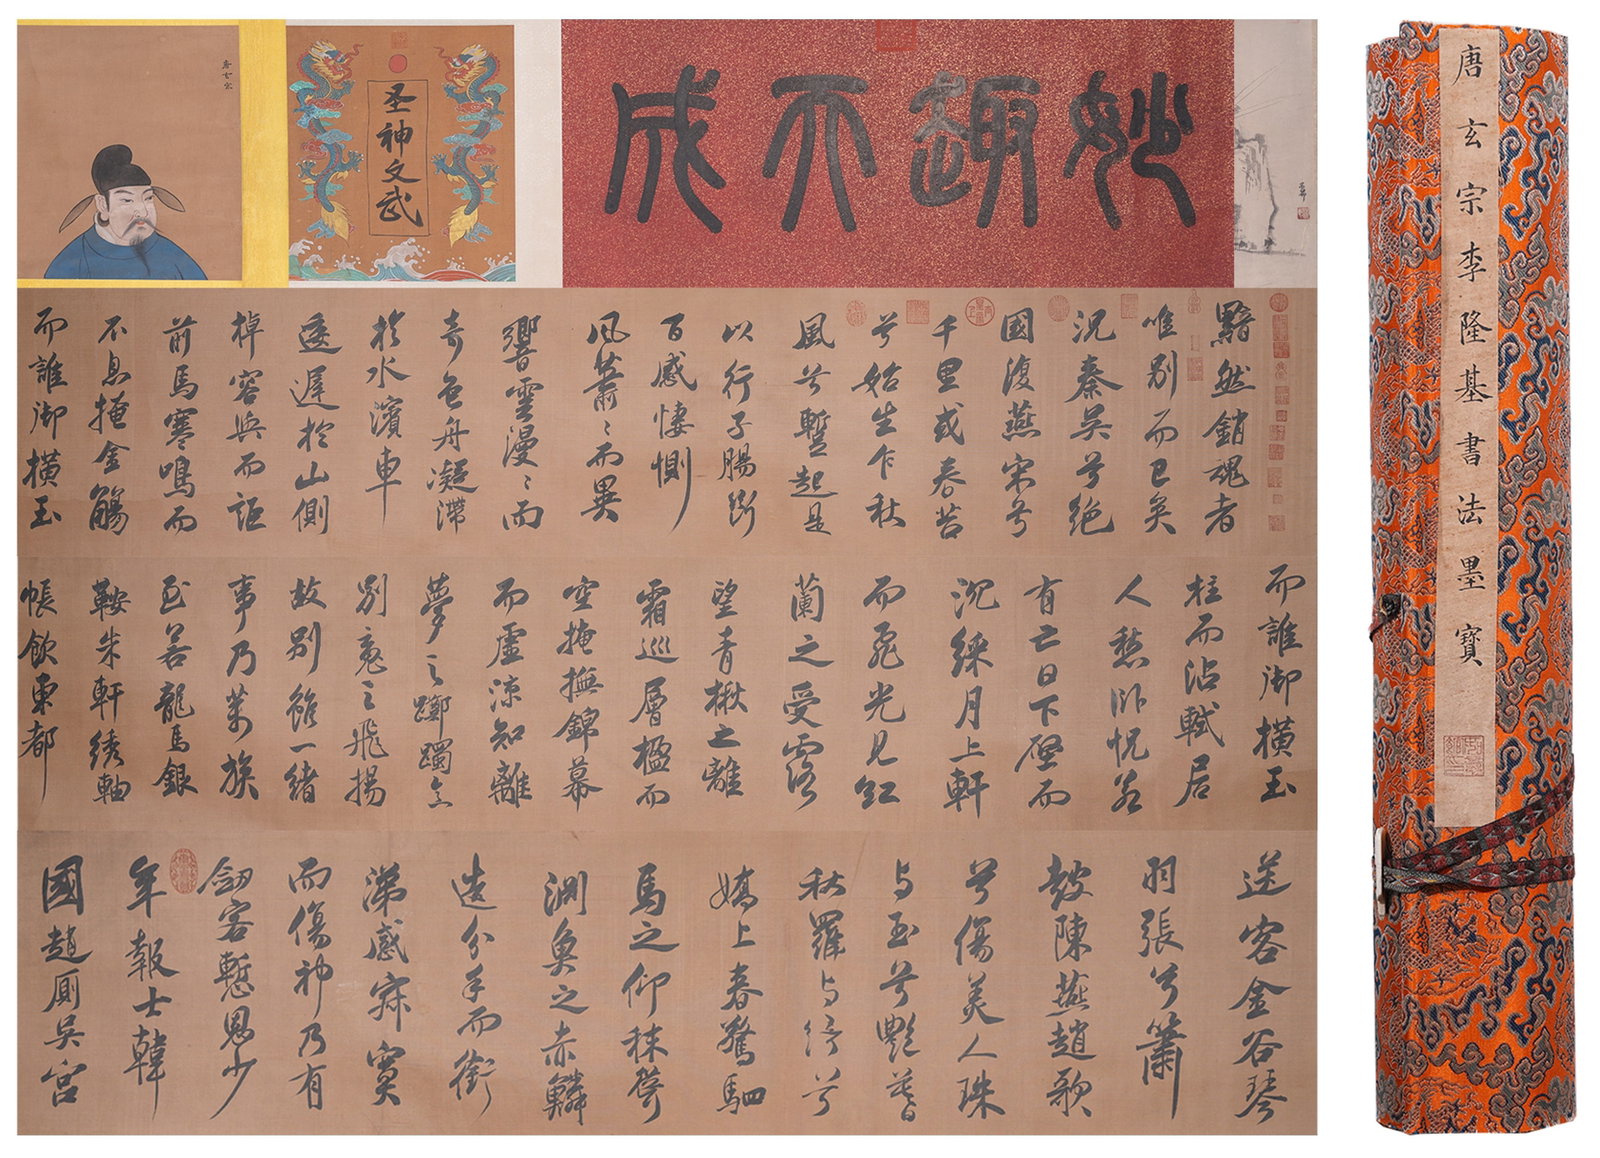 妙趣天成
圣神文武
唐玄宗
黯然銷魂者
唯別而已矣
況秦吳兮絕
國復燕宋兮
千里或春苔
兮始生乍秋
風兮蹔起是
以行子腸斷
百感悽惻
風蕭〻而異
響雲漫〻而
奇色舟凝滯
於水濱車
逶遲於山側
棹容與而詎
前馬寒鳴而
不息掩金觴
而誰御橫玉
而誰御橫玉
柱而沾軾居
人愁卧怳若
有亡日下壁而
沉綵月上軒
而飛光見紅
蘭之受露
望青楸之離
霜巡層楹而
空掩撫錦幕
而虛涼知離
夢之躑躅意
別魂之飛揚
故別雖一緒
事乃萬族
至若龍馬銀
鞍朱軒綉軸
帳飲東都
送客金谷琴
羽張兮簫
鼓陳燕趙歌
兮傷美人珠
与玉兮艷暮
秋羅与綺兮
嬌上春驚駟
馬之仰秣聳
淵魚之赤鱗
造分手而銜
涕感寂寞
而傷神乃有
劍客慙恩少
年報士韓
國趙厠吳宮
唐玄宗李隆基書法墨寶